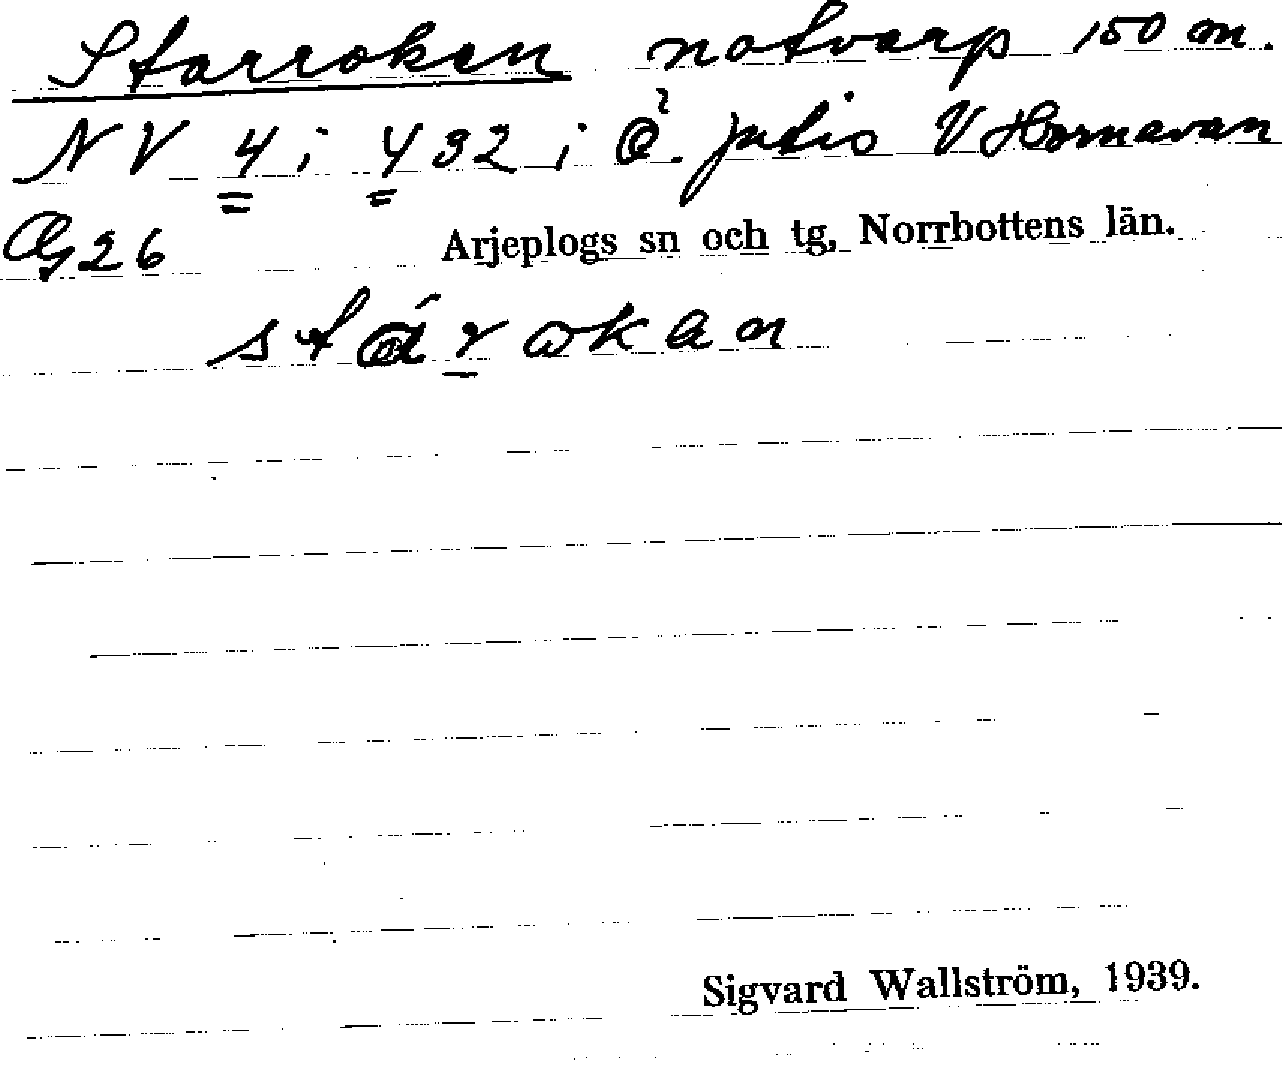 Starroken notvarp 150 m.
NV 4 i 432 i Ö. Jutis V Hornavan
G26 Arjeplogs sn och tg, Norrbottens län.
Sigvard Wallström, 1939.